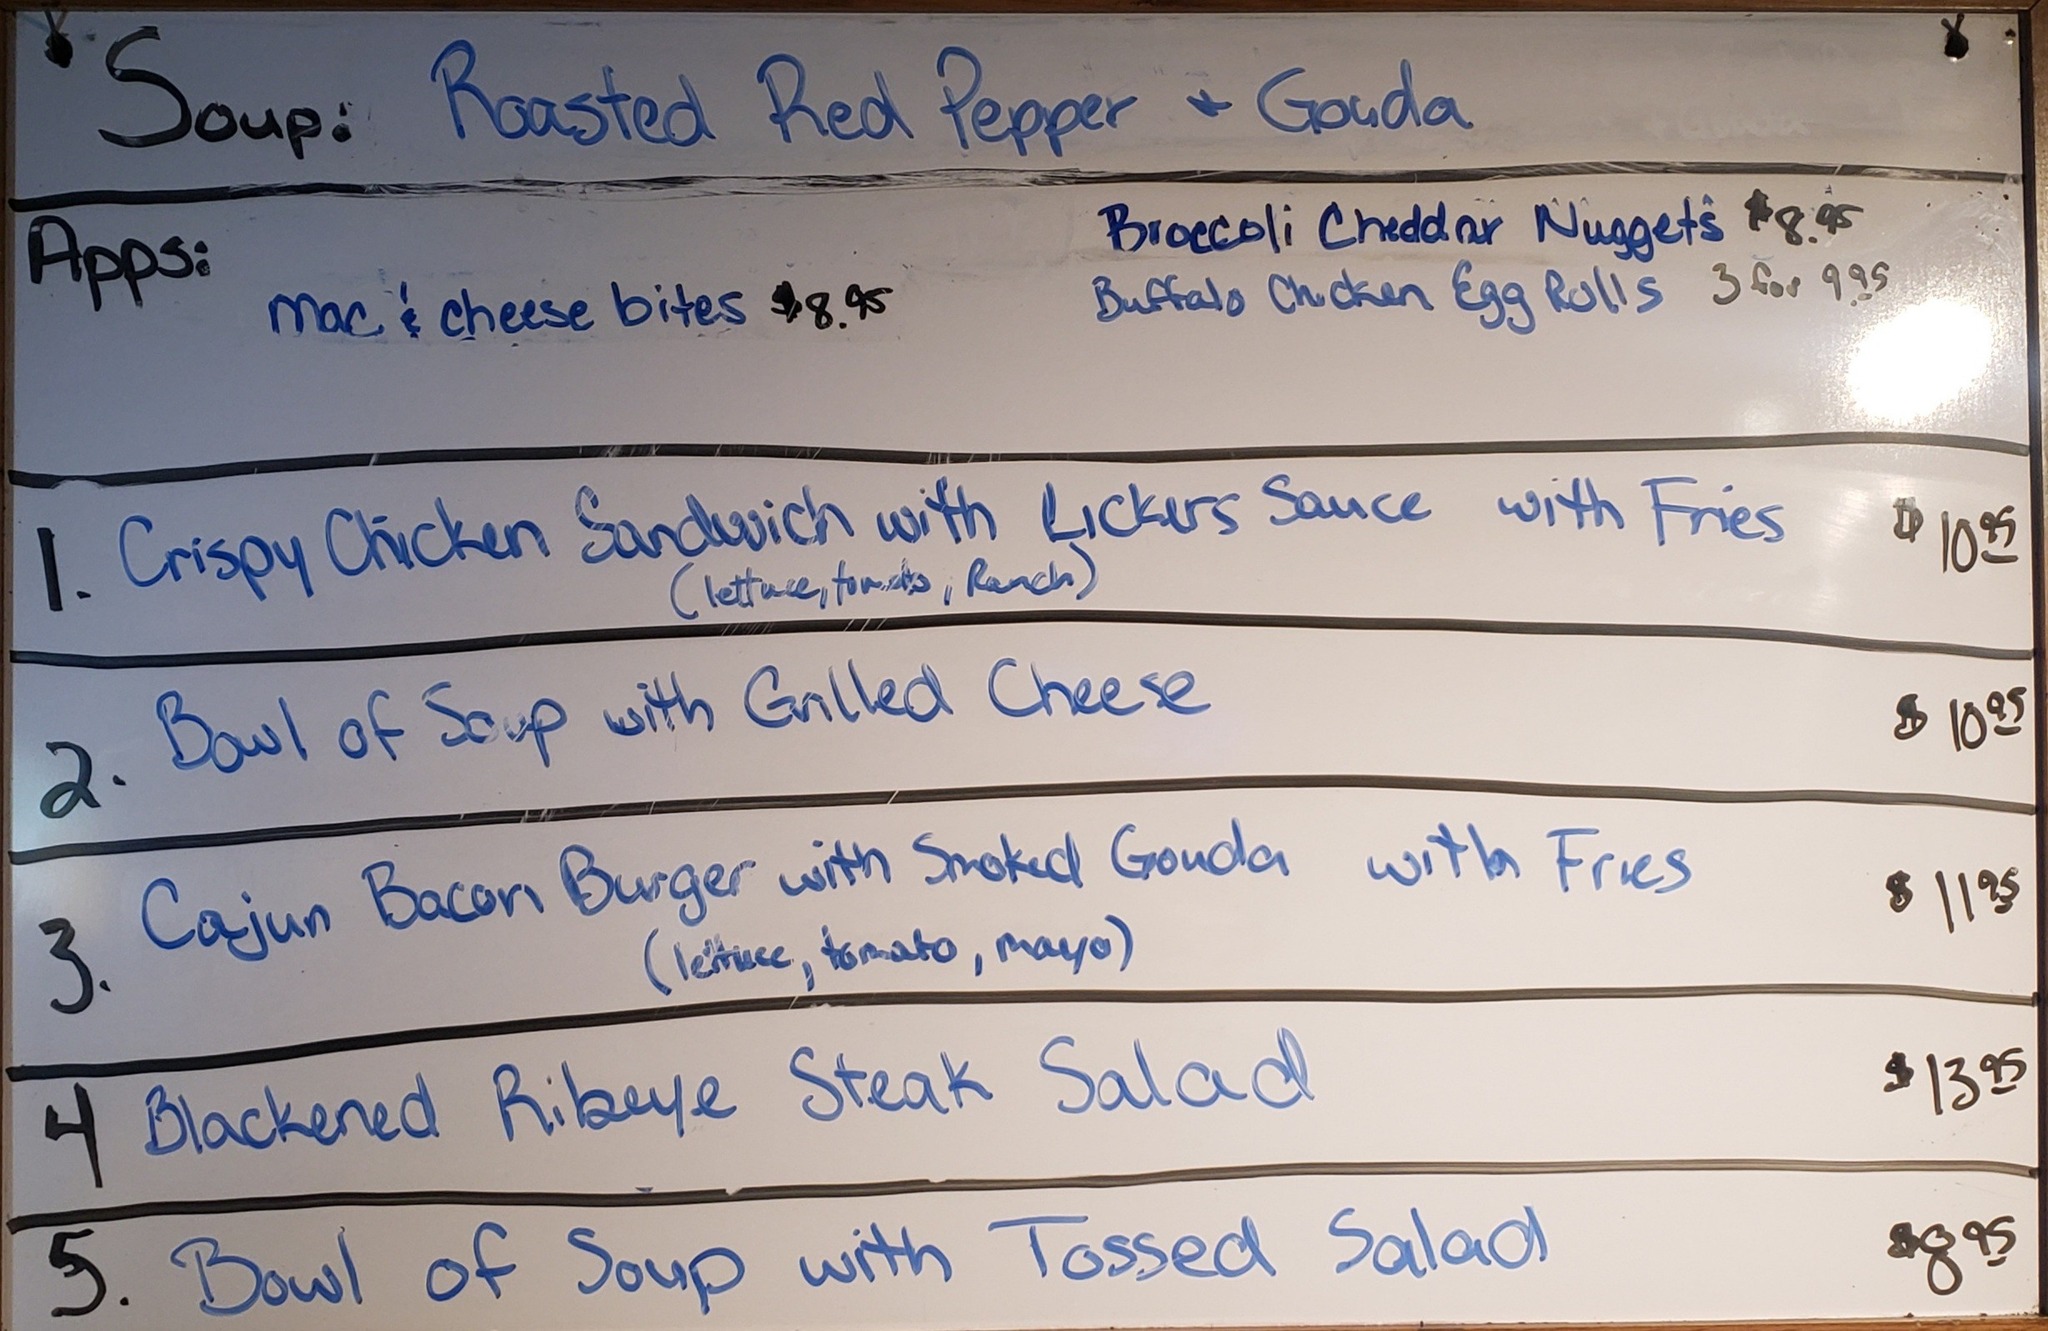 Soup: Roasted Red Pepper + Gouda
Apps:
mac & cheese bites $8.95
Broccoli Cheddar Nuggets $8.95
Buffalo Chicken Egg Rolls 3 for 9.95
1. Crispy Chicken Sandwich with Lickers Sauce with Fries $10.95
(lettuce, tomato, Ranch)
2. Bowl of Soup with Grilled Cheese $10.95
3. Cajun Bacon Burger with Smoked Gouda with Fries $11.95
(lettuce, tomato, mayo)
4 Blackened Ribeye Steak Salad $13.95
5. Bowl of Soup with Tossed Salad $8.95